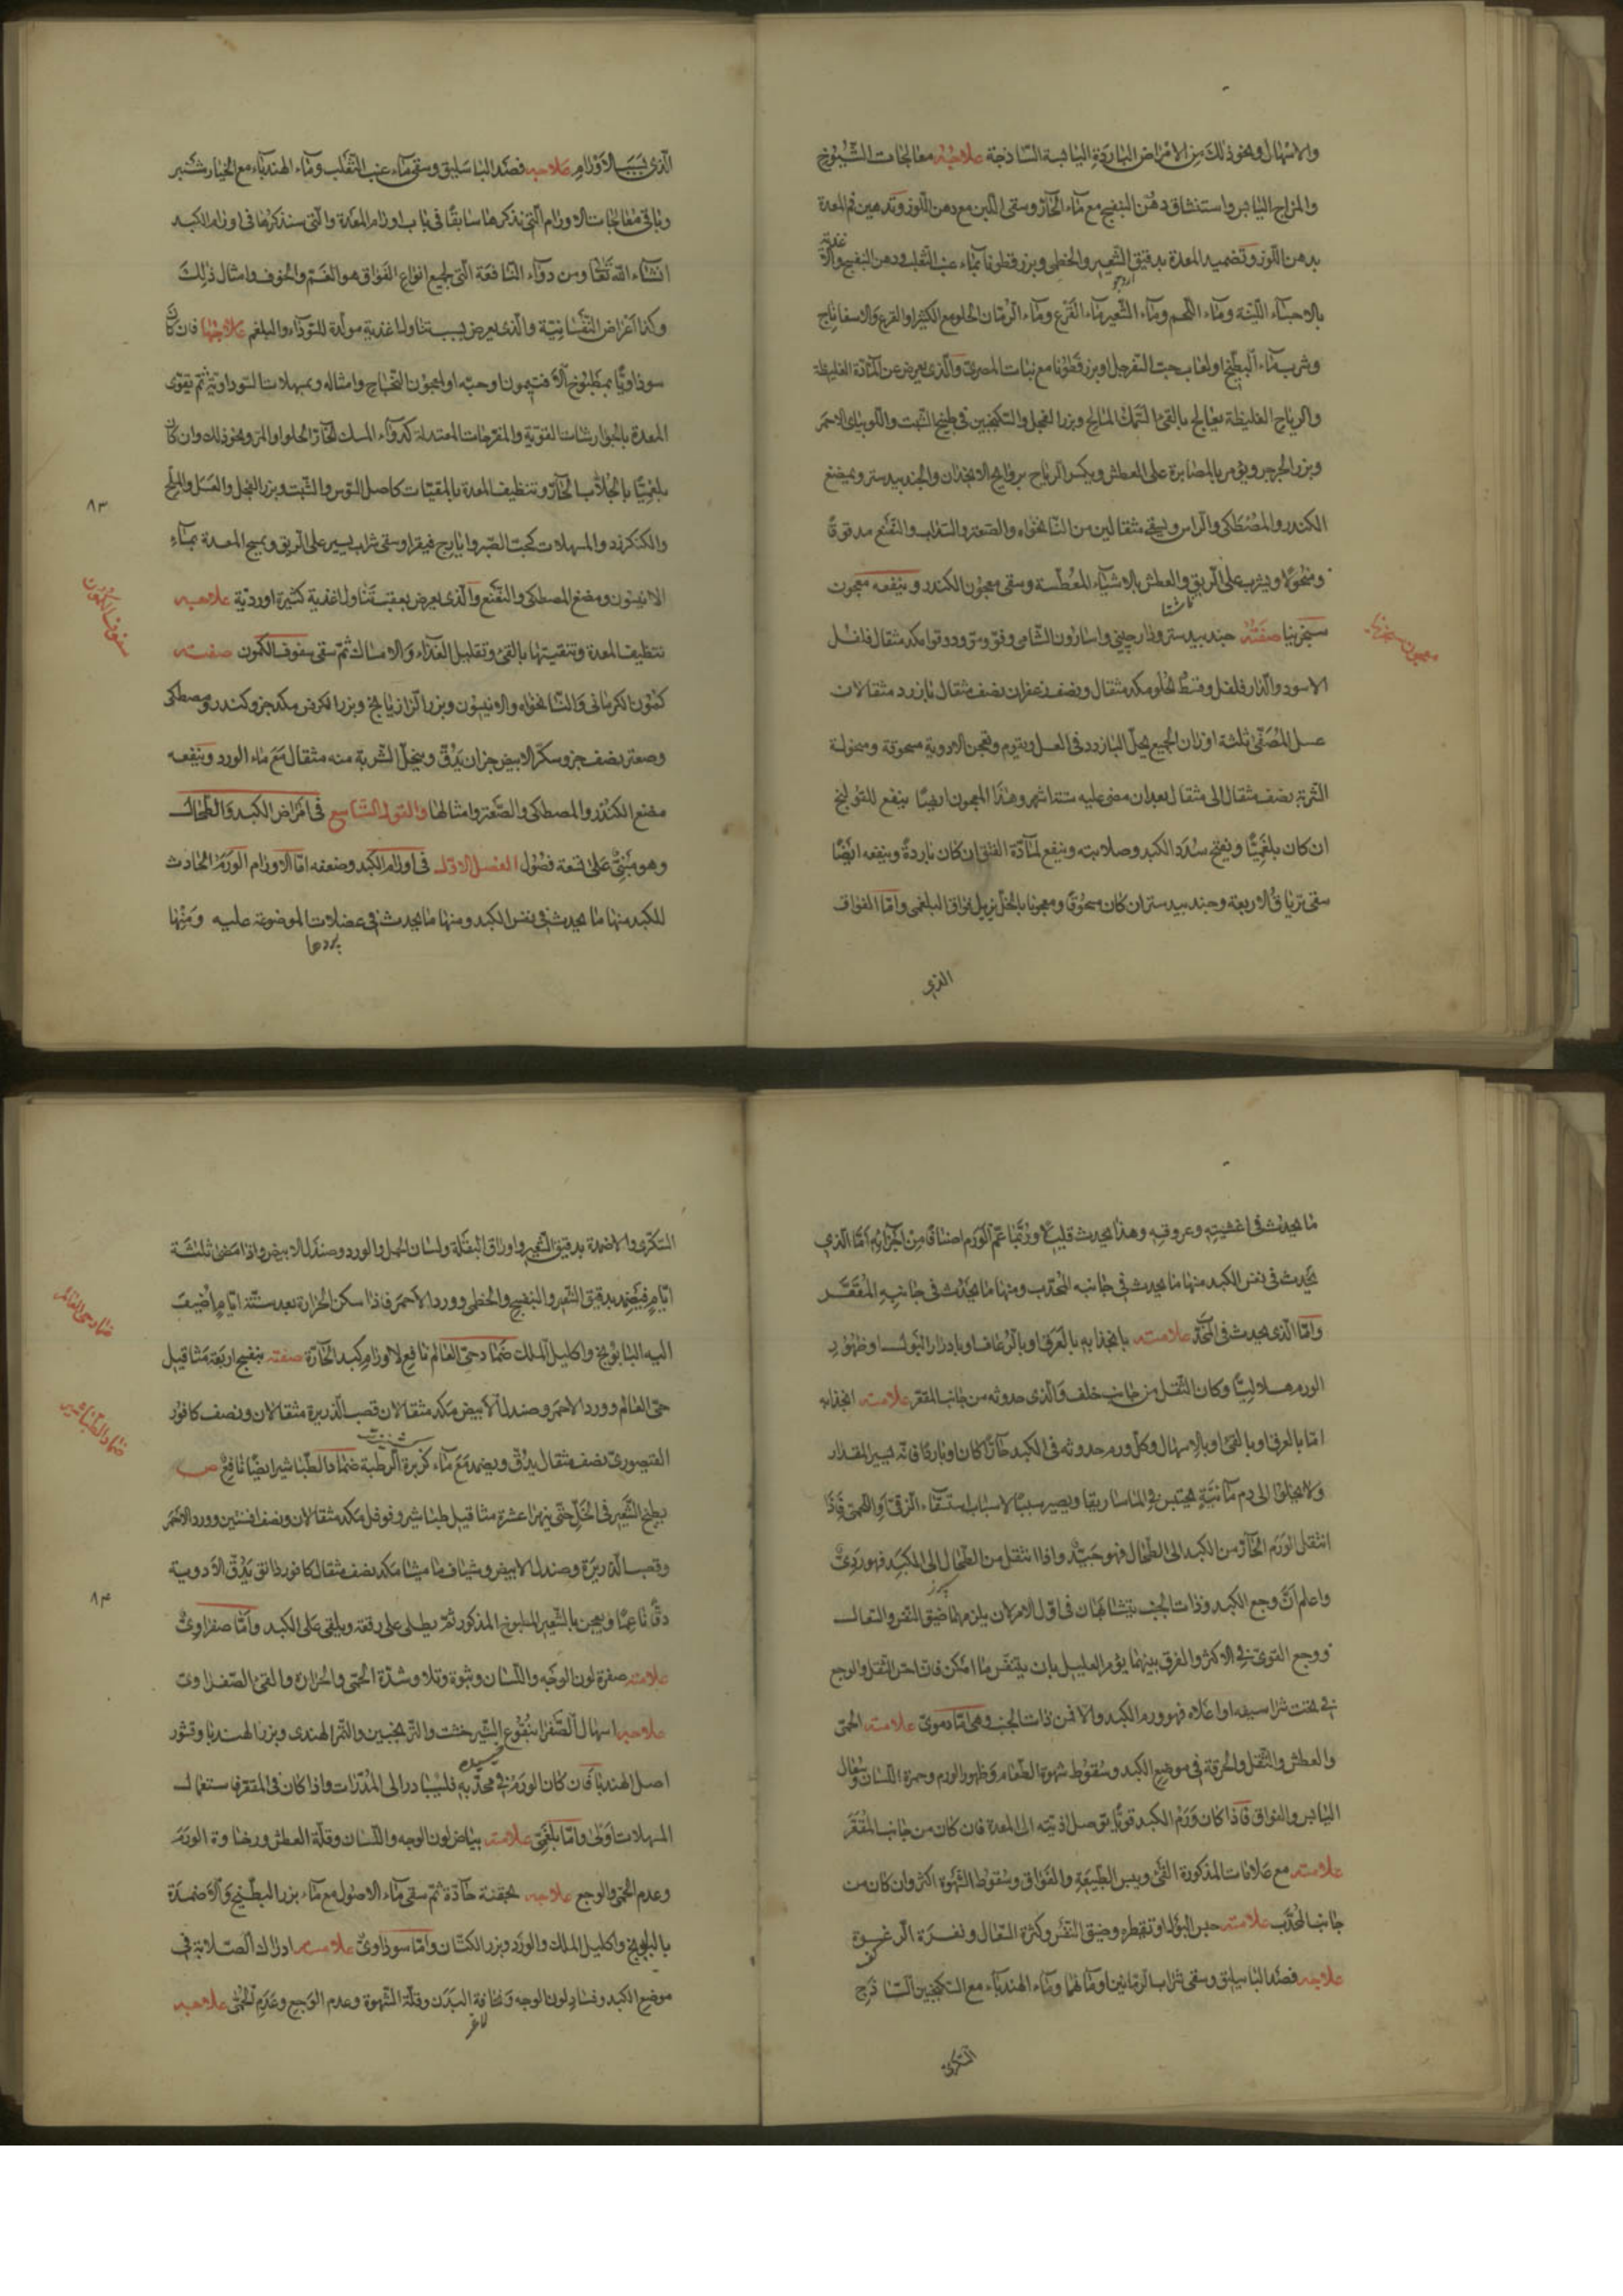 والاسهال ونحو ذلك من الامراض الباردة اليابسة الساذجة علاجه معالجات الشيوخ
والمزاج اليابس واستنشاق دهن البنفسج مع ماء الحار وسقى اللبن مع دهن اللوز وتدهين فم المعدة
بدهن اللوز وتضميد المعدة بدقيق الشعير والخطمى وبزر قطونا بماء عنب الثعلب ودهن البنفسج والاغذية
بالاحساء اللينة وماء اللحم وماء الشعير بماء القرع وماء الرمان الحلو مع الكثيرا والقرع والاسفاناج
وشرب ماء البطيخ او لعاب حب السفرجل او بزر قطونا مع نبات المصرى والذى يعرض عن المادة الغليظة
والرياح الغليظة يعالج بالقئ السمك المالح وبزر الفجل والسكنجبين فى طبيخ الشبت واللوبياى الاحمر
وبزر الجرجر ويؤمر بالمصابرة على العطش ويكسر الرياح بروايح الانجدان والجندبيدستر ويمضغ
الكندر والمصطكى والراسن ويسقى مثقالين من النانخواه والصعتر والسذاب والنعنع مدقوقًا
ومنخولا ويشرب على الريق والعطش بالاشياء المعطسة وسقى معجون الكندر وينفعه معجون
ناشتا
سجزينيا صفته جندبيدستر ودارچينى واسارون الشامى وفو ومو ودوقوا مكد مثقال فلفل
معجون سجزينيا
الاسود والدار فلفل وقسط الحلو مكد مثقال ونصف زعفران نصف مثقال بازرد مثقالان
عسل المصفى ثلثة اوزان الجميع يحل البازرد فى العسل ويقوم وتعجن الادوية مسحوقة ومنخولة
الشربة نصف مثقال الى مثقال بعد ان مضى عليه ستة اشهر وهذا المعجون ايضًا ينفع للقولنج
ان كان بلغميًا ويفتح سدد الكبد وصلابته وينفع لمادة الفتق ان كان باردة وينفعه ايضًا
سقى ترياق الاربعة وجندبيدستر ان كان مسحوقًا ومعجونا بالخل يزيل فواق البلغمى واما الفواق
الذى
الذى بسبب الاورام علاجه فصد الباسليق وسقى ماء عنب الثعلب وماء الهندباء مع الخيار شنبر
وباقى معالجات الاورام التى نذكرها سابقًا فى باب اورام المعدة والتى سنذكرها فى اورام الكبد
انشاء الله تعالى ومن دواء النافعة التى لجميع انواع الفواق هو الغم والخوف وامثال ذلك
وكذا اعراض النفسانية والذى يعرض بسبب تناول اغذية مولدة للسوداء والبلغم علاجها فان كان
سوداويًا بمطبوخ الافتيمون وحبه او بمعجون النجاح وامثاله ومسهلات السوداوية ثم تقوى
المعدة بالجوارشات القوية والمفرحات المعتدلة كدواء المسك الحار الحلو او المر ونحو ذلك وان كان
بلغميًا بالجلاب الحار وتنظيف المعدة بالمقيئات كاصل السوس والشبت وبزر الفجل والعسل والملح
٨٣
والكنكرزد والمسهلات كحب الصبر وايارج فيقرا وسقى شراب يسير على الريق وتمسيح المعدة بماء
الانيسون ومضغ المصطكى والنعنع والذى يعرض بعقب تناول اغذية كثيرة او ردية علاجه
سفوف الكمون
تنظيف المعدة وتنقيتها بالقئ وتقليل الغذاء والامساك ثم سقى سفوف الكمون صفته
كمون الكرمانى والنانخواه والانيسون وبزر الرازيانج وبزر الكرفس مكد جزو كندر ومصطكى
وصعتر نصف جزو سكر الابيض جزان يدق وينخل الشربة منه مثقال مع ماء الورد وينفعه
مضغ الكندر والمصطكى والصعتر وامثالها والقول التاسع فى امراض الكبد والطحال
وهو مبنى على تسعة فصول الفصل الاول فى اورام الكبد وضعفه اما الاورام الورم الحادث
للكبد منها ما يحدث فى نفس الكبد ومنها ما يحدث فى عضلات الموضوعة عليه ومنها
ما يحدث فى اغشيته وعروقه وهذا يحدث قليلا وربما عم الورم اصنافًا من اجزائه اما الذى
يحدث فى نفس الكبد منها ما يحدث فى جانبه المحدب ومنها ما يحدث فى جانبه المقعر
واما الذى يحدث فى المحدب علامته بانجذابه بالعرق او بالرعاف او بادرار البول او ظهور
الورم هلاليًا وكان الثقل من جانب خلف والذى حدوثه من جانب المقعر علامته انجذابه
اما بالعرق او بالقئ او بالاسهال وكل ورم حدوثه فى الكبد حارًا كان او باردًا فانه ليسير المقدار
ولا يخلوا الى دم مائية يحتبس فى الماساريقا ويصير سببًا لاسباب استسقاء الزقى او اللحمى فاذا
انتقل الورم الحار من الكبد الى الطحال فهو جيد واذا انتقل من الطحال الى الكبد فهو ردى
واعلم ان وجع الكبد وذات الجنب يتشابهان فى اول الامر لان يلزمهما ضيق النفس والسعال
ووجع القوى فى الاكثر والفرق بينهما يؤمر العليل بان يتنفس ما امكن فان احس الثقل والوجع
فى تحت شراسيفه او اعلاه فهو ورم الكبد والا فمن ذات الجنب وهى اما دموى علامته الحمى
والعطش والثقل والحرقة فى موضع الكبد وسقوط شهوة الطعام وظهور الورم وحمرة اللسان وسعال
اليابس والفواق فاذا كان ورم الكبد قويًا توصل اذيته الى المعدة فان كان من جانب المقعر
علامته مع علامات المذكورة القئ ويبس الطبيعة والفواق وسقوط الشهوة اكثر وان كان من
جانب المحدب علامته حبس البول او تقطره وضيق النفس وكثرة السعال ونفرة الرغوة
كف
علاجه فصد الباسليق وسقى شراب الرمانين او مائهما وماء الهندباء مع السكنجبين الساذج
السكرى
السكرى والاضمدة بدقيق الشعير واوراق البقلة ولسان الحمل والورد وصندل الابيض واذا مضى ثلثة
ايام فيضمد بدقيق الشعير والبنفسج والخطمى وورد الاحمر فاذا سكن الحرارة بعد ستة ايام اضيف
ضماد حى العالم
اليه البابونج واكليل الملك ضماد حى العالم نافع لاورام كبد الحارة صفته بنفسج اربعة مثاقيل
حى العالم وورد الاحمر وصندل الابيض مكد مثقالان قصب الذريرة مثقالان ونصف كافور
ضماد الطباشير
القيصورى نصف مثقال يدق ويضمد مع ماء كزبرة الرطبة ضماد الطباشير ايضًا نافع ص
يطبخ الشعير فى الخل حتى يتهرا عشرة مثاقيل طباشير وفوفل مكد مثقالان ونصف افسنتين وورد الاحمر
وقصب الذريرة وصندل الابيض وشياف ماميثا مكد نصف مثقال كافور دانق يدق الادوية
٨٤
دقًا ناعمًا ويعجن بالشعير المطبوخ المذكور ثم يطلى على رقعة ويلقى على الكبد واما صفراوى
علامته صفرة لون الوجه واللسان وشدة الحمى والحرارة والقئ الصفراوى
علاجه اسهال الصفرا بنقوع الشيرخشت والترنجبين والتمر الهندى وبزر الهندبا وقشور
اصل الهندبا فان كان الورم فى محدبه فليبادر الى المدرات واذا كان فى المقعر فاستعمال
المسهلات اولى واما بلغمى علامته بياض لون الوجه واللسان وقلة العطش ورخاوة الورم
وعدم الحمى والوجع علاجه بحقنة حادة ثم سقى ماء الاصول مع ماء بزر البطيخ والاضمدة
بالبابونج واكليل الملك والورد وبزر الكتان واما سوداوى علامته ادراك الصلابة فى
موضع الكبد وفساد لون الوجه ونحافة البدن وقلة الشهوة وعدم الوجع وعدم الحمى علاجه
لاغر